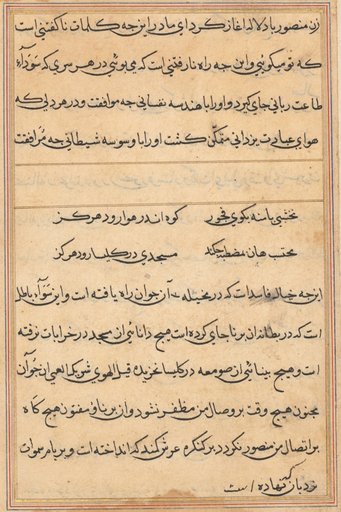 زن منصور با دلاله اغاز کرد ای مادر این جه کلمات ناکفتنی است
که تو میکوئی و این جه راه نارفتنی است که می پوئی در هر سری که سوداء
طاعت ربانی جای کیرد و او را با هندسه نفسانی جه موافقت و در هر دلی که
هوای عبادت یزدانی متمکن کشت او را با وسوسه شیطانی جه مرافقت
نخشبی پا نه بکوی فجور کوه اندر هوا رود هرکز
محتسب هان مصطبه مسجدی در کلیسا رود هرکز
این جه خیال فاسد است که در مخیله آن جوان راه یافته است و این سوداء باطل
است که در بطانه ان برنا جای کرده است هیج دانائی از مسجد در خرابات نرفته
است و هیج بینائی از صومعه در کلیسا نخزیده قبل الهوی شریک العمی ان جوان
مجنون هیج وقت بر وصال من مظفر نشود و ان برناء مفتون هیج کاه
بر اتصال من منصور نکردد بر کنکره عرش کند که انداخته است و بر بام سموات
نردبان که نهاده است